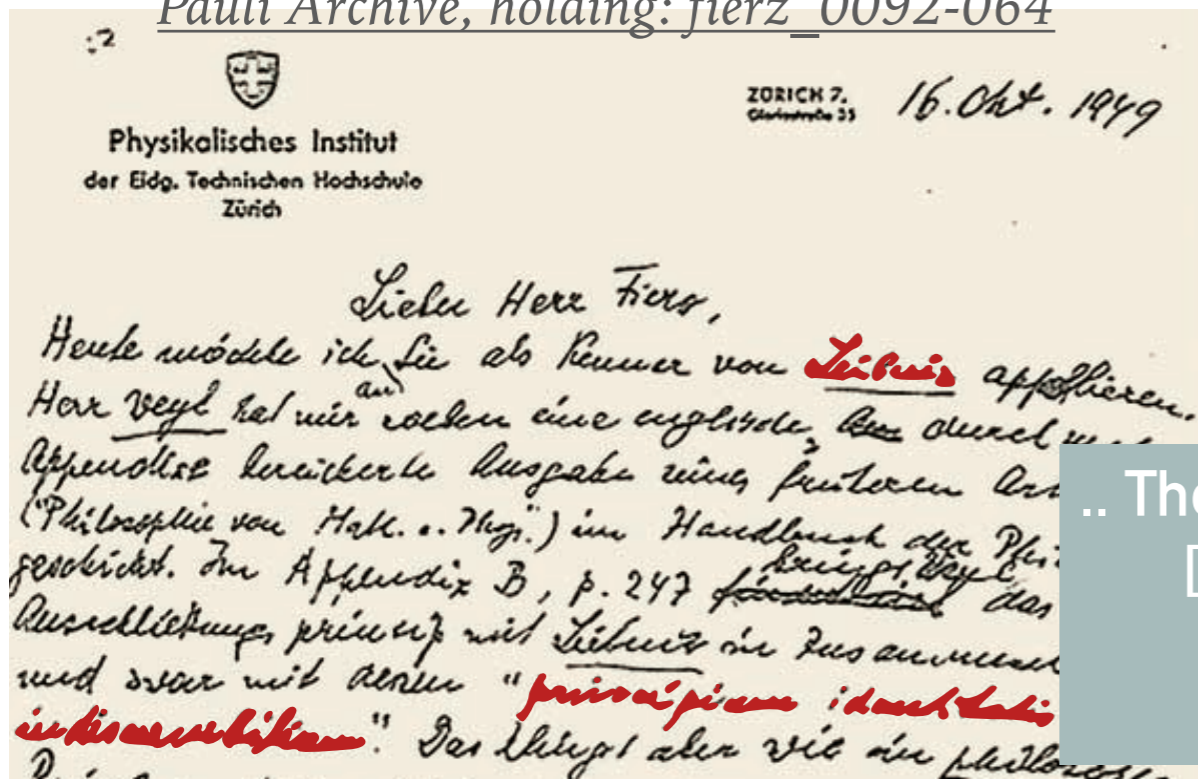 Pauli Archive, holding: fierz_0092-064
:2
Physikalisches Institut
der Eidg. Technischen Hochschule
Zürich
ZÜRICH 7.
Gloriastraße 35
16. Okt. 1949
Lieber Herr Fierz,
Heute möchte ich Sie als Kenner von Leibniz apostlieren.
Herr Weyl hat mir soeben eine englische, durch
an
Appendices bereicherte Ausgabe seines früheren
("Philosophie von Math. u. Phys.") im Handbuch der
geschickt. Im Appendix B, p. 247 bringt Weyl das
Ausschließungsprinzip mit Leibniz in
und zwar mit dessen "principium identitatis
indiscernibilium". Das klingt aber wie ein
.. The
[